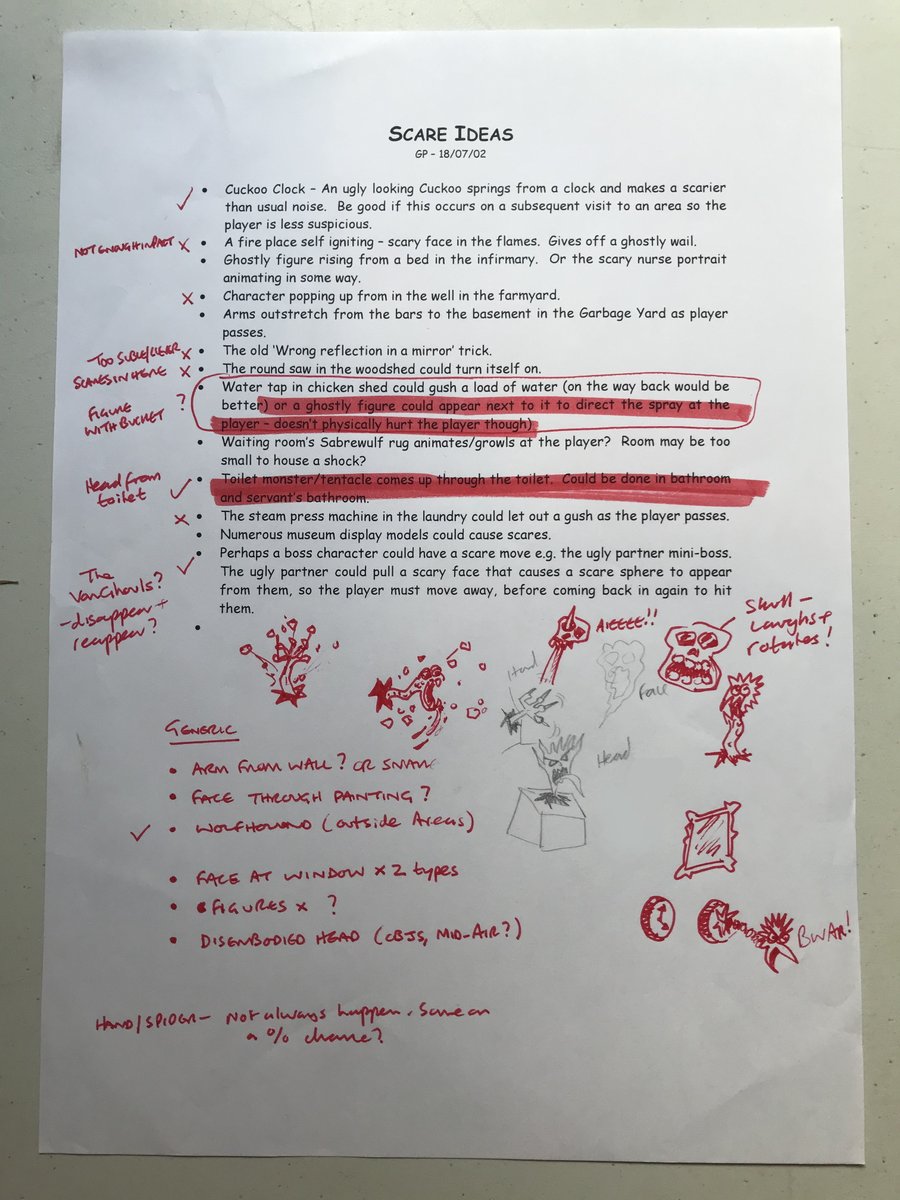 SCARE IDEAS
GP – 18/07/02
• Cuckoo Clock – An ugly looking Cuckoo springs from a clock and makes a scarier
than usual noise. Be good if this occurs on a subsequent visit to an area so the
player is less suspicious.
NOT ENOUGH IMPACT X • A fire place self igniting – scary face in the flames. Gives off a ghostly wail.
• Ghostly figure rising from a bed in the infirmary. Or the scary nurse portrait
animating in some way.
X • Character popping up from in the well in the farmyard.
• Arms outstretch from the bars to the basement in the Garbage Yard as player
passes.
TOO SUBTLE/CLEVER X • The old ‘Wrong reflection in a mirror’ trick.
SCARES IN HERE X • The round saw in the woodshed could turn itself on.
• Water tap in chicken shed could gush a load of water (on the way back would be
FIGURE ? better) or a ghostly figure could appear next to it to direct the spray at the
WITH BUCKET player – doesn’t physically hurt the player though)
• Waiting room’s Sabrewulf rug animates/growls at the player? Room may be too
small to house a shock?
Head from • Toilet monster/tentacle comes up through the toilet. Could be done in bathroom
toilet and servant’s bathroom.
X • The steam press machine in the laundry could let out a gush as the player passes.
• Numerous museum display models could cause scares.
• Perhaps a boss character could have a scare move e.g. the ugly partner mini-boss.
The ugly partner could pull a scary face that causes a scare sphere to appear
from them, so the player must move away, before coming back in again to hit
them.
The
VanGhouls?
- disappear +
reappear?
•
AIEEEE!!
Skull –
Laughs +
rotates!
Hand
Face
Head
GENERIC
• ARM FROM WALL? OR
• FACE THROUGH PAINTING?
• WOLFHOUND (outside Areas)
• FACE AT WINDOW x 2 types
• FIGURES x ?
• DISEMBODIED HEAD (OBJS, MID-AIR?)
BWAR!
HAND/SPIDER – Not always happen. Some on
a % chance?